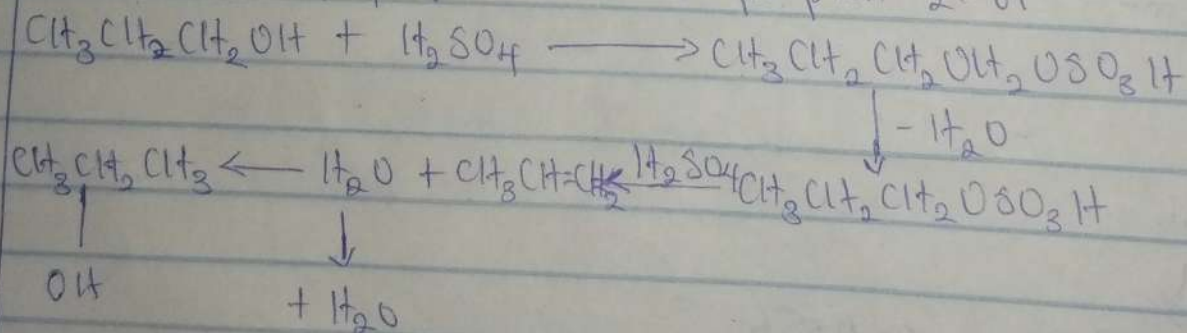 CH₃CH₂CH₂OH + H₂SO₄ ⟶ CH₃CH₂CH₂OH₂OSO₃H
↓ - H₂O
CH₃CH₂CH₃ ← H₂O + CH₃CH=CH₂ ← H₂SO₄ CH₃CH₂CH₂OSO₃H
| ↓
OH + H₂O